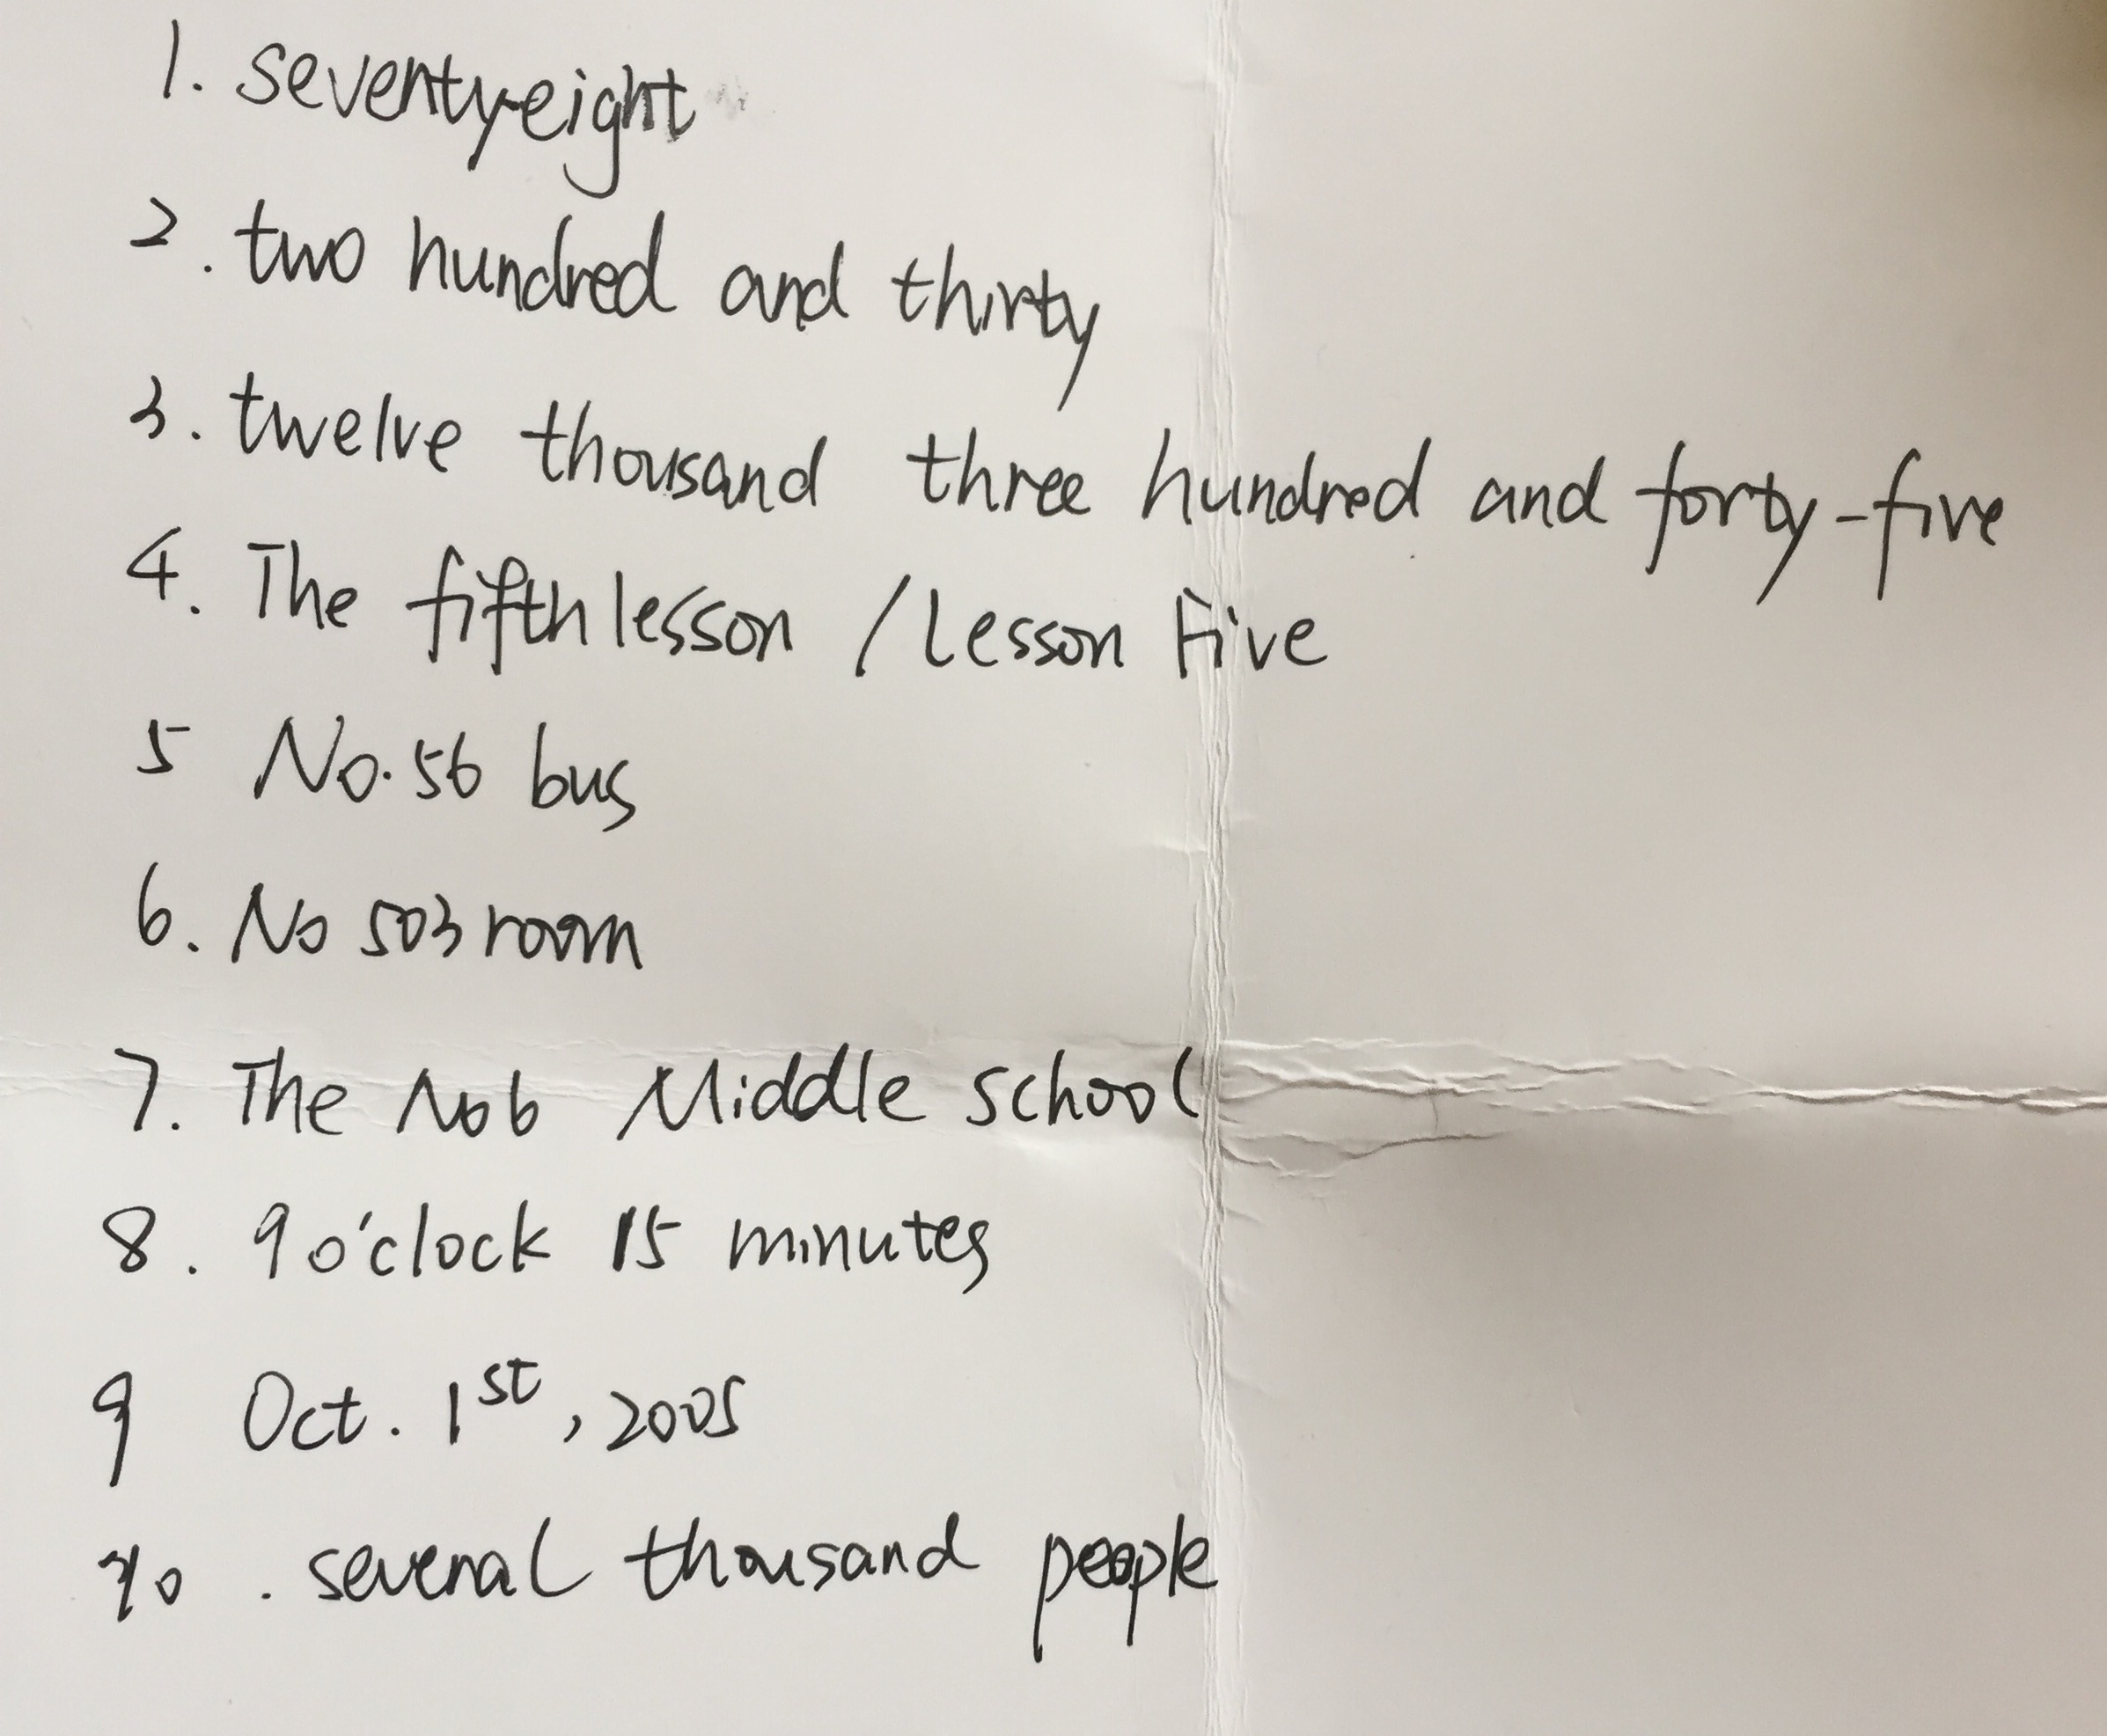 1. seventy-eight
2. two hundred and thirty
3. twelve thousand three hundred and forty-five
4. The fifth lesson / Lesson Five
5 No.56 bus
6. No 503 room
7. The No6 Middle school
8. 9 o'clock 15 minutes
9 Oct. 1st, 2005
10. several thousand people